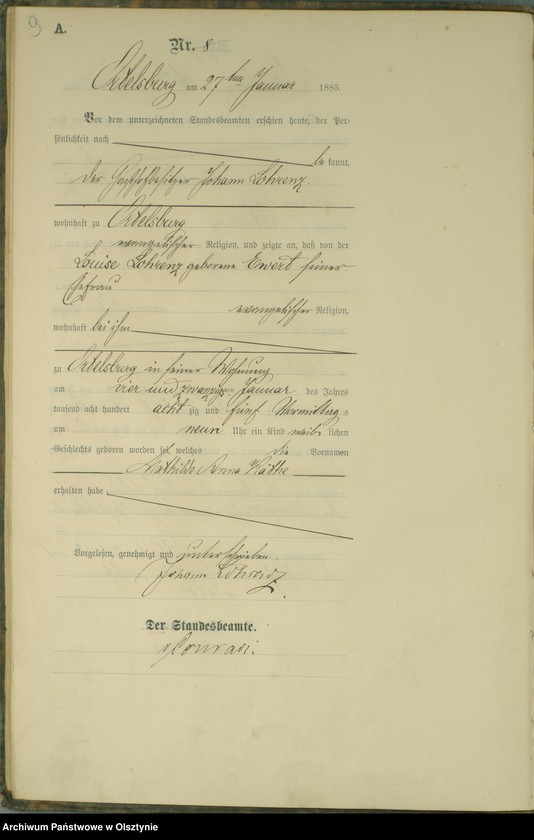 9
A.
Nr. 8
Ortelsburg am 27ten Januar 1885.
Vor dem unterzeichneten Standesbeamten erschien heute, der Per-
sönlichkeit nach
be kannt,
der Gasthofbesitzer Johann Lohrenz
wohnhaft zu Ortelsburg
evangelischer Religion, und zeigte an, daß von der
Louise Lohrenz geborene Ewert seiner
Ehefrau
evangelischer Religion,
wohnhaft bei ihm
zu Ortelsburg in seiner Wohnung
am vier und zwanzigsten Januar des Jahrs
tausend acht hundert acht zig und fünf Vormittags
um neun Uhr ein Kind weib lichen
Geschlechts geboren worden sei, welches die Vornamen
Mathilde Anna Käthe
erhalten habe
Vorgelesen, genehmigt und unterschrieben
Johann Lohrenz
Der Standesbeamte.
Conradi.
Archiwum Państwowe w Olsztynie